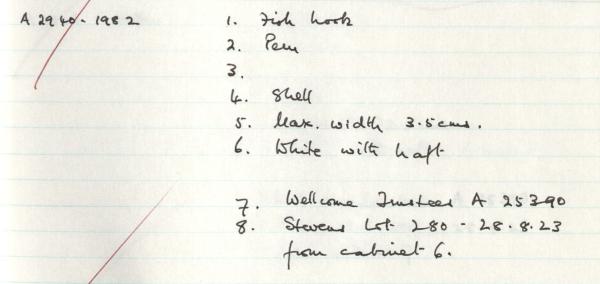 A 2940-1982
1. Fish hook
2. Peru
3.
4. Shell
5. Max. width 3.5cms.
6. White with haft
7. Wellcome Trustees A 25390
8. Stevens Lot 280 - 28.8.23
from cabinet 6.